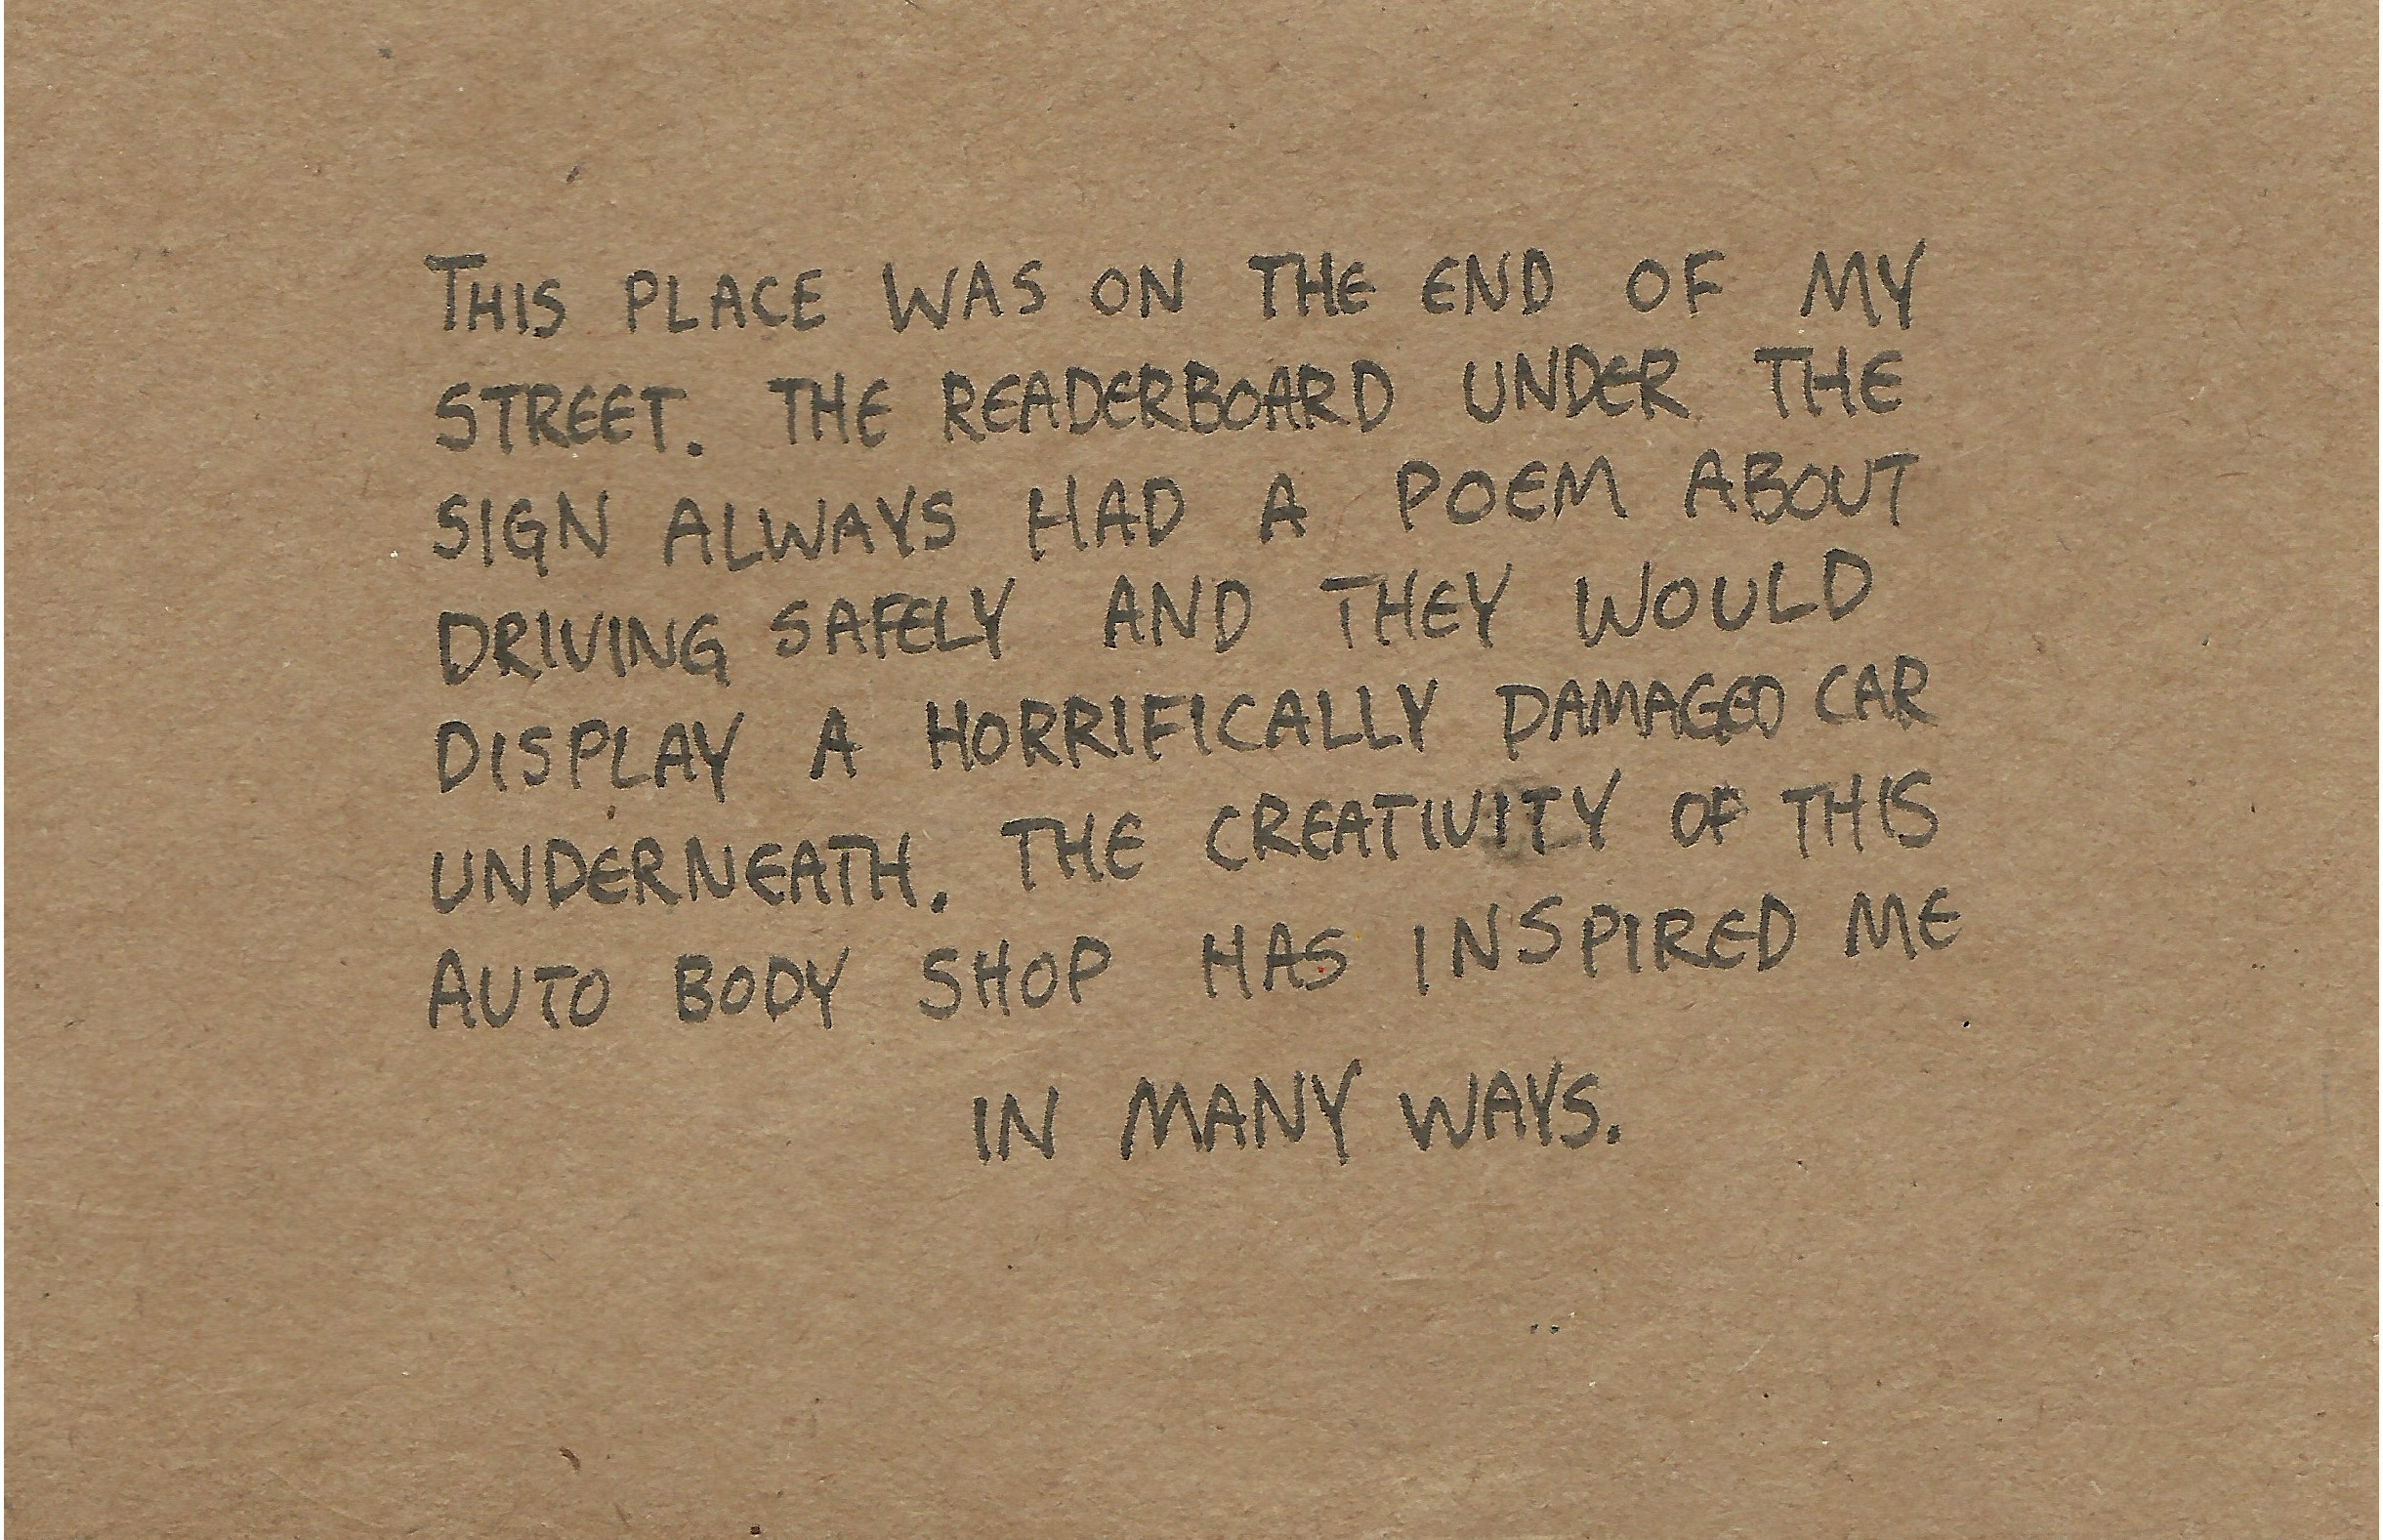 THIS PLACE WAS ON THE END OF MY
STREET. THE READERBOARD UNDER THE
SIGN ALWAYS HAD A POEM ABOUT
DRIVING SAFELY AND THEY WOULD
DISPLAY A HORRIFICALLY DAMAGED CAR
UNDERNEATH. THE CREATIVITY OF THIS
AUTO BODY SHOP HAS INSPIRED ME
IN MANY WAYS.